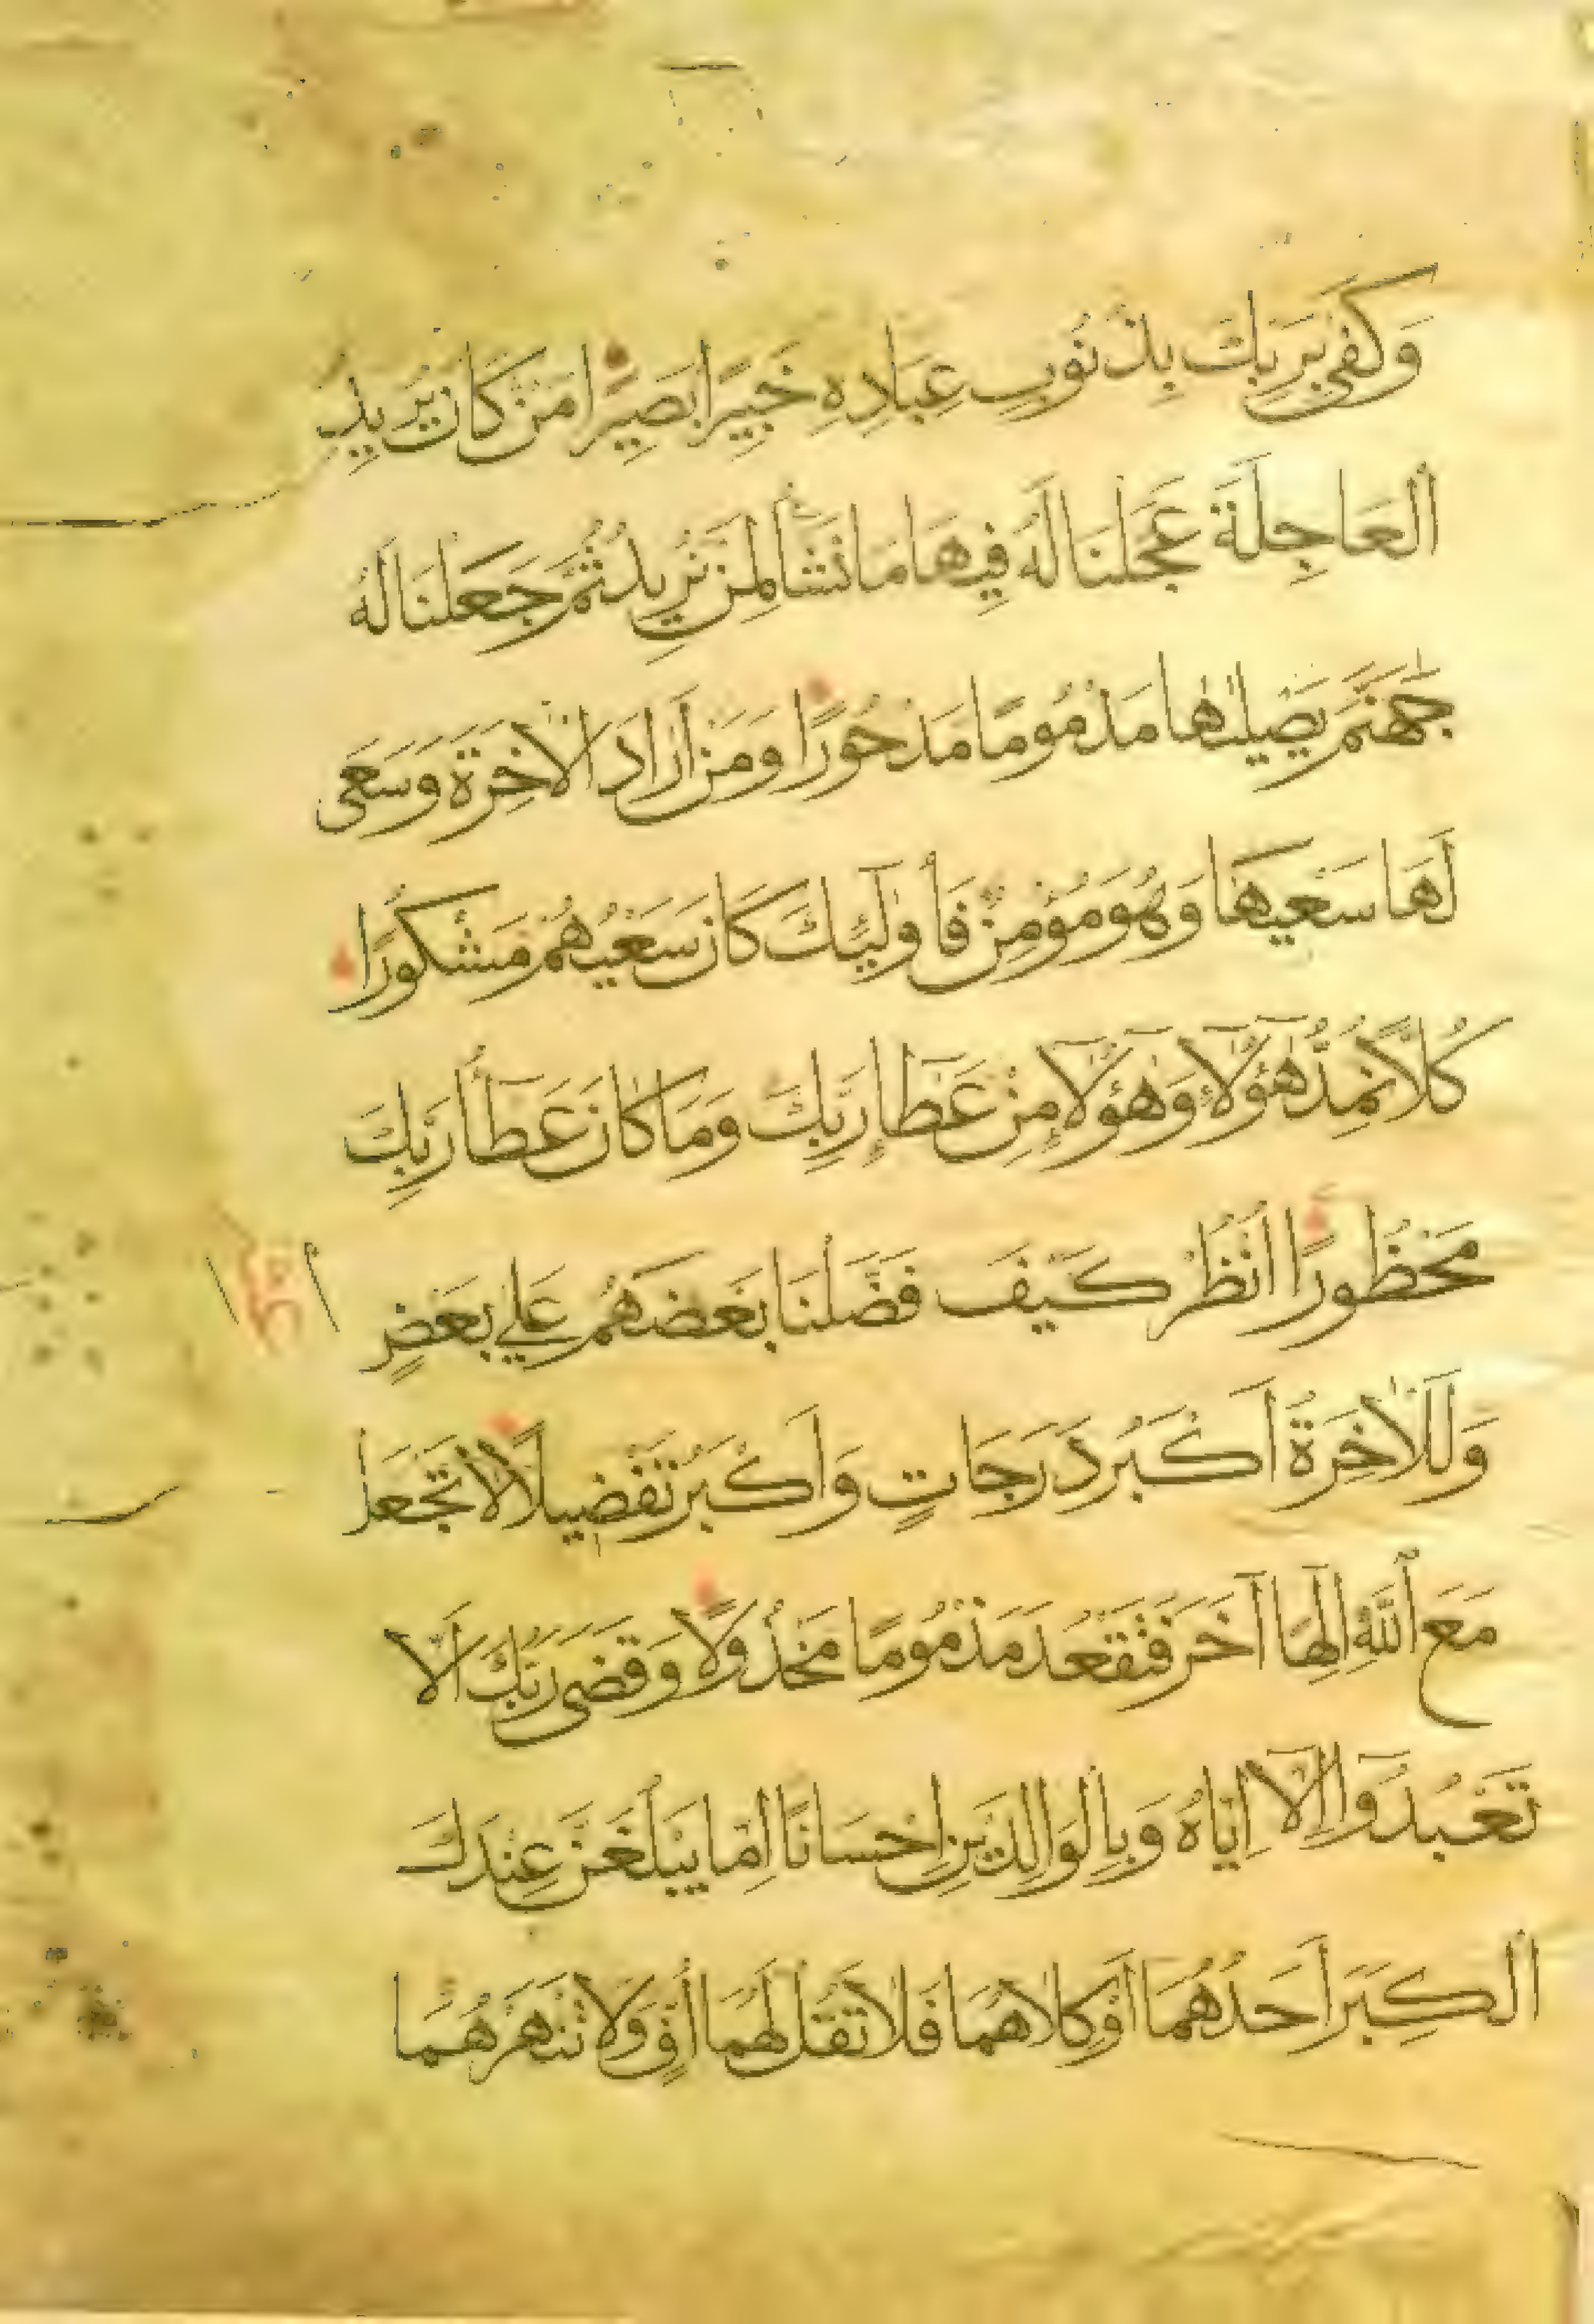 وَكَفَى بِرَبِّكَ بِذُنُوبِ عِبَادِهِ خَبِيرًا بَصِيرًا مَنْ كَانَ يُرِيدُ
الْعَاجِلَةَ عَجَّلْنَا لَهُ فِيهَا مَا نَشَأُ لِمَنْ نُرِيدُ ثُمَّ جَعَلْنَا لَهُ
جَهَنَّمَ يَصْلَيٰهَا مَذْمُومًا مَدْحُورًا وَمَنْ اَرَادَ الْاٰخِرَةَ وَسَعَى
لَهَا سَعْيَهَا وَهُوَ مُؤْمِنٌ فَأُولٰٓئِكَ كَانَ سَعْيُهُمْ مَشْكُورًا
كُلًّا نُمِدُّ هٰٓؤُلَآءِ وَهٰٓؤُلَآءِ مِنْ عَطَآءِ رَبِّكَ وَمَا كَانَ عَطَآءُ رَبِّكَ
مَحْظُورًا اُنْظُرْ كَيْفَ فَضَّلْنَا بَعْضَهُمْ عَلَى بَعْضٍ
وَلَلْاٰخِرَةُ اَكْبَرُ دَرَجَاتٍ وَاَكْبَرُ تَفْضِيلًا لَا تَجْعَلْ
مَعَ اللَّهِ اِلٰهًا آخَرَ فَتَقْعُدَ مَذْمُومًا مَخْذُولًا وَقَضَى رَبُّكَ اَلَّا
تَعْبُدُوا اِلَّآ اِيَّاهُ وَبِالْوَالِدَيْنِ اِحْسَانًا اِمَّا يَبْلُغَنَّ عِنْدَكَ
الْكِبَرَ اَحَدُهُمَا أَوْ كِلَاهُمَا فَلَا تَقُلْ لَهُمَا أُفٍّ وَلَا تَنْهَرْهُمَا